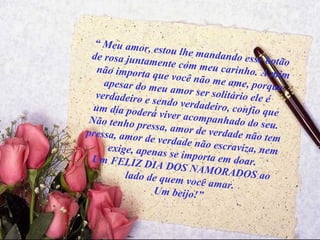 “ Meu amor, estou lhe mandando esse botão
de rosa juntamente com meu carinho. A mim
não importa que você não me ame, porque
apesar do meu amor ser solitário ele é
verdadeiro e sendo verdadeiro, confio que
um dia poderá viver acompanhado do seu.
Não tenho pressa, amor de verdade não tem
pressa, amor de verdade não escraviza, nem
exige, apenas se importa em doar.
Um FELIZ DIA DOS NAMORADOS ao
lado de quem você amar.
Um beijo!”